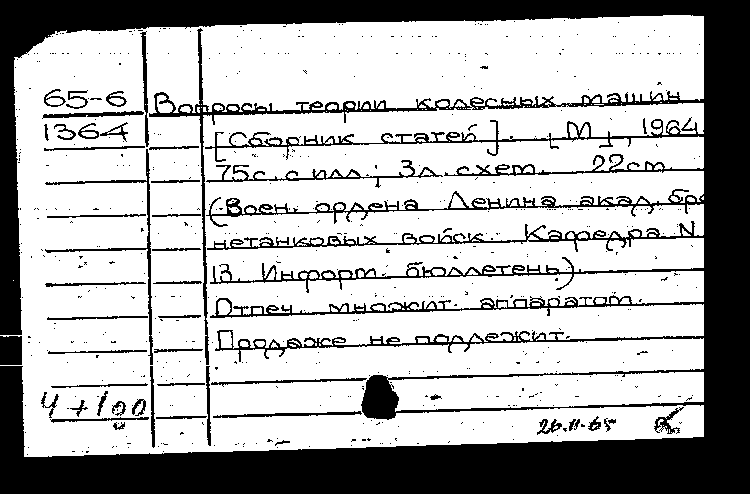 65-6 Вопросы теории колесных машин
1364 [Сборник статей]. [М], 1964.
75с. с илл.; 3л. схем. 22см.
(Воен. ордена Ленина акад. бро
нетанковых войск. Кафедра N
13. Информ. бюллетень).
Отпеч. множит. аппаратом.
Продаже не подлежит.
4+100
26.11.65